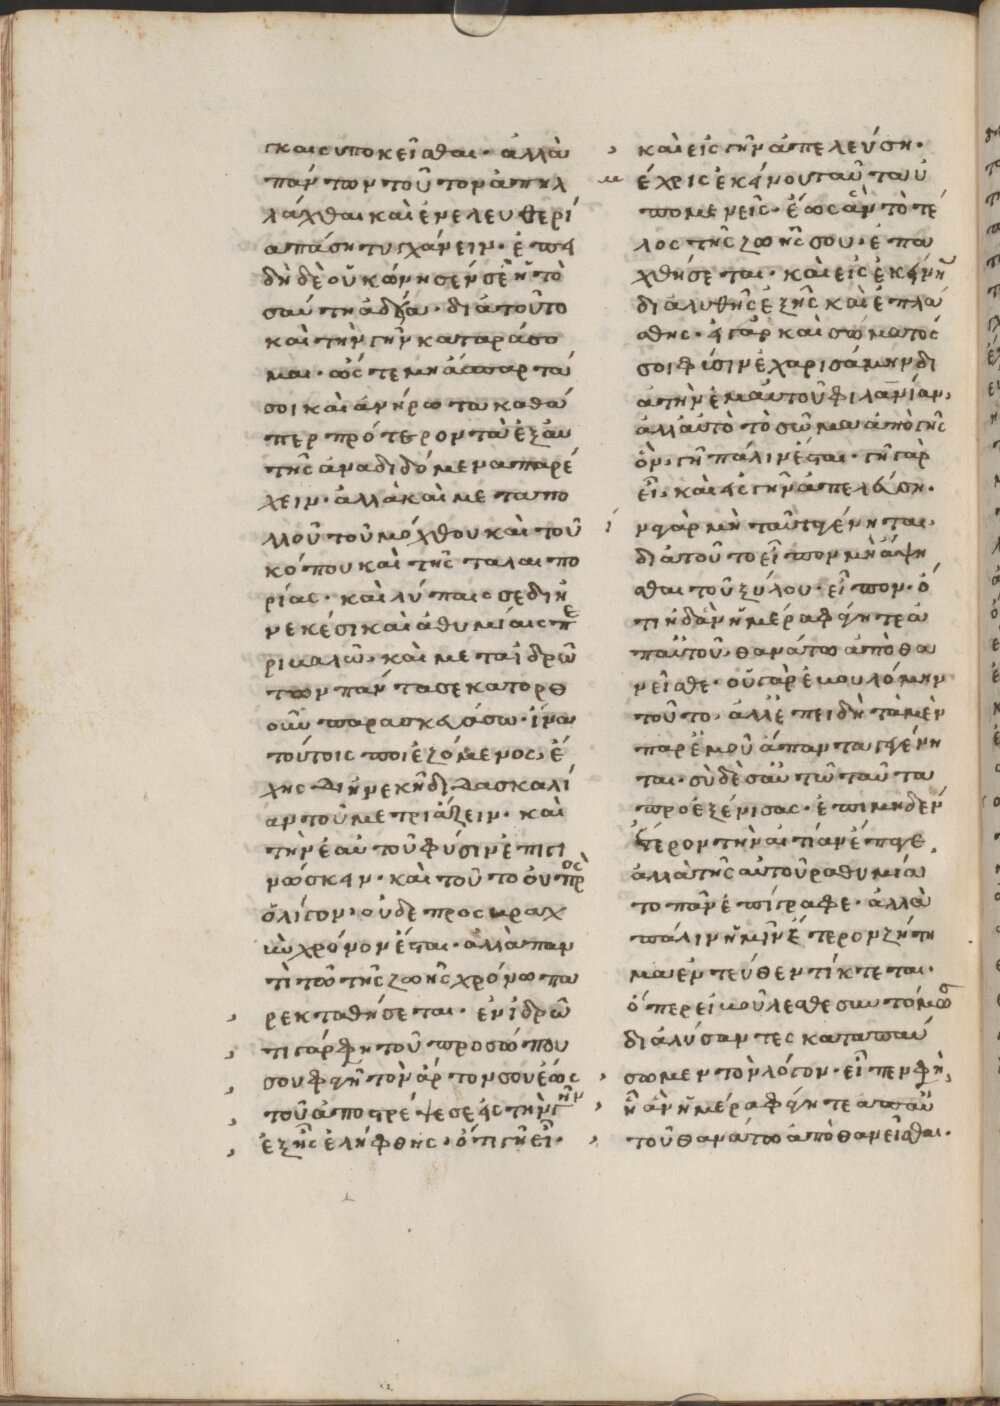 γκαις υποκεῖσθαι· ἀλλὰ
πάντων τοῦτον ἀπηλ
λάχθαι καὶ ἐν ἐλευθερί
α πάση τυγχάνειν· ἐπει
δὴ δὲ οὐκ ὤνησέν σε ἡ το
σαύτη ἄδεια· διὰ τοῦτο
καὶ τὴν γῆν καταράσο
μαι· ὥς τε μὴ ἄσπαρτά
σοι καὶ ἀνήροτα καθά
περ πρότερον τὰ ἐξ αυ
τῆς ἀναδιδόμενα παρέ
χειν· ἀλλὰ καὶ μετα πο
λλοῦ τοῦ μόχθου καὶ τοῦ
κόπου καὶ τῆς ταλαιπο
ρίας· καὶ λύπαις σε διη
νεκέσι καὶ ἀθυμίαις πε
ριβαλῶ· καὶ μετα ἱδρώ
των πάντα σε κατορθ
οῦν παρασκευάσω· ἵνα
τούτοις πιεζόμενος, ἔ
χης διηνεκῆ διδασκαλί
αν τοῦ μετριάζειν· καὶ
τὴν ἑαυτοῦ φύσιν ἐπιγι
νώσκειν· καὶ τοῦτο οὐ πρὸς
ὀλίγον· οὐδε προς βραχ
ὺν χρόνον ἔσται· ἀλλὰ παν
τὶ τῶ τῆς ζωῆς χρόνω πα
ρεκταθήσεται· ἐν ἱδρῶ
τι γάρ φη τοῦ προσώπου
σου φαγῆ τὸν ἄρτον σου ἕως
τοῦ ἀποστρέψε σε εἰς τὴν γῆν
ἐξ ἧς ἐλήφθης· ὅτι γῆ εἶ·
καὶ εἰς γῆν ἀπελεύση·
μέχρις ἐκείνου ταῦτα ὑ
πομενεῖς· ἕως ἂν τὸ τέ
λος τῆς ζωῆς σου· ἐπα
χθήσεται· καὶ εἰς ἐκείνην
διαλυθῆς ἐξ ἧς καὶ ἐπλά
σθης· εἰ γὰρ καὶ σώματός
σοι φύσιν ἐχαρισάμην δι
ὰ τὴν ἐμαυτοῦ φιλανίαν,
ἀλλ' αὐτὸ τὸ σῶμα ἀπὸ γῆς
ὂν, γῆ πάλιν ἔσται· γῆ γὰρ
εἶ, καὶ εἰς γῆν ἀπελεύση·
ἵνα γὰρ μὴ ταῦτα γένηται·
διὰ τοῦτο εἶπον μὴ ἅψη
σθαι τοῦ ξύλου· εἶπον· ὅ
τι ἧ δ' ἂν ἡμέρα φάγητε ἀ
π' αὐτοῦ, θανάτω ἀποθα
νεῖσθε· οὐ γὰρ ἐβουλόμην
τοῦτο, ἀλλ' ἐπειδὴ τὰ μὲν
παρ' ἐμοῦ ἅπαντα γεγένη
ται· σὺ δὲ σαυτῶ ταῦτα
προεξένισας· ἐπι μηδεν
ἕτερον τὴν αἰτίαν ἐπαγε,
ἀλλὰ τῆς αὐτοῦ ραθυμία
το πᾶν ἐπίγραφε· ἀλλὰ
πάλιν ἡμῖν ἕτερον ζήτη
μα ἐντεύθεν τίκτεται·
ὅπερ εἰ βούλεσθε συντόμως
διαλύσαντες καταπαύ
σωμεν τὸν λόγον· εἶπεν φη,
ἧ ἂν ἡμέρα φάγητε απ' αὐ
τοῦ θανάτω ἀποθανεῖσθαι·